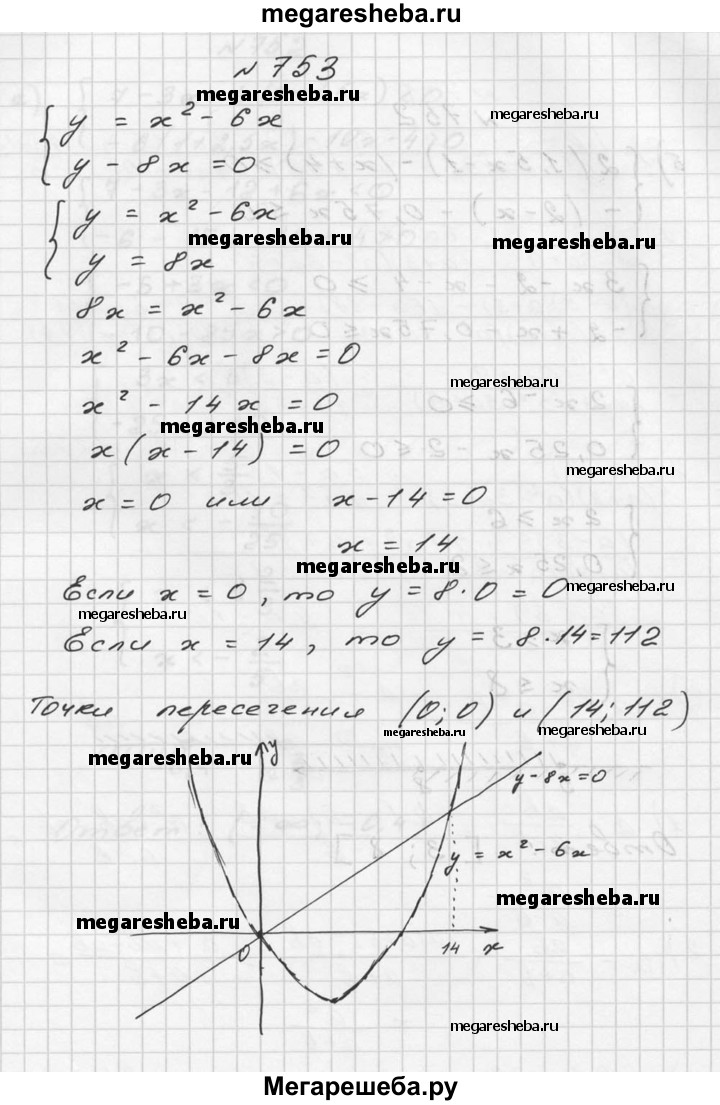 megaresheba.ru
№ 753
megaresheba.ru
megaresheba.ru
y = x² - 6x
y - 8x = 0
y = x² - 6x
megaresheba.ru
megaresheba.ru
y = 8x
8x = x² - 6x
x² - 6x - 8x = 0
megaresheba.ru
x² - 14x = 0
megaresheba.ru
x(x - 14) = 0
megaresheba.ru
x = 0 или x - 14 = 0
x = 14
megaresheba.ru
Если x = 0, то y = 8·0 = 0
megaresheba.ru
megaresheba.ru
Если x = 14, то y = 8·14 = 112
Точки пересечения (0; 0) и (14; 112)
megaresheba.ru
megaresheba.ru
megaresheba.ru
y
y - 8x = 0
y = x² - 6x
megaresheba.ru
megaresheba.ru
0
14
x
megaresheba.ru
Мегарешеба.ру